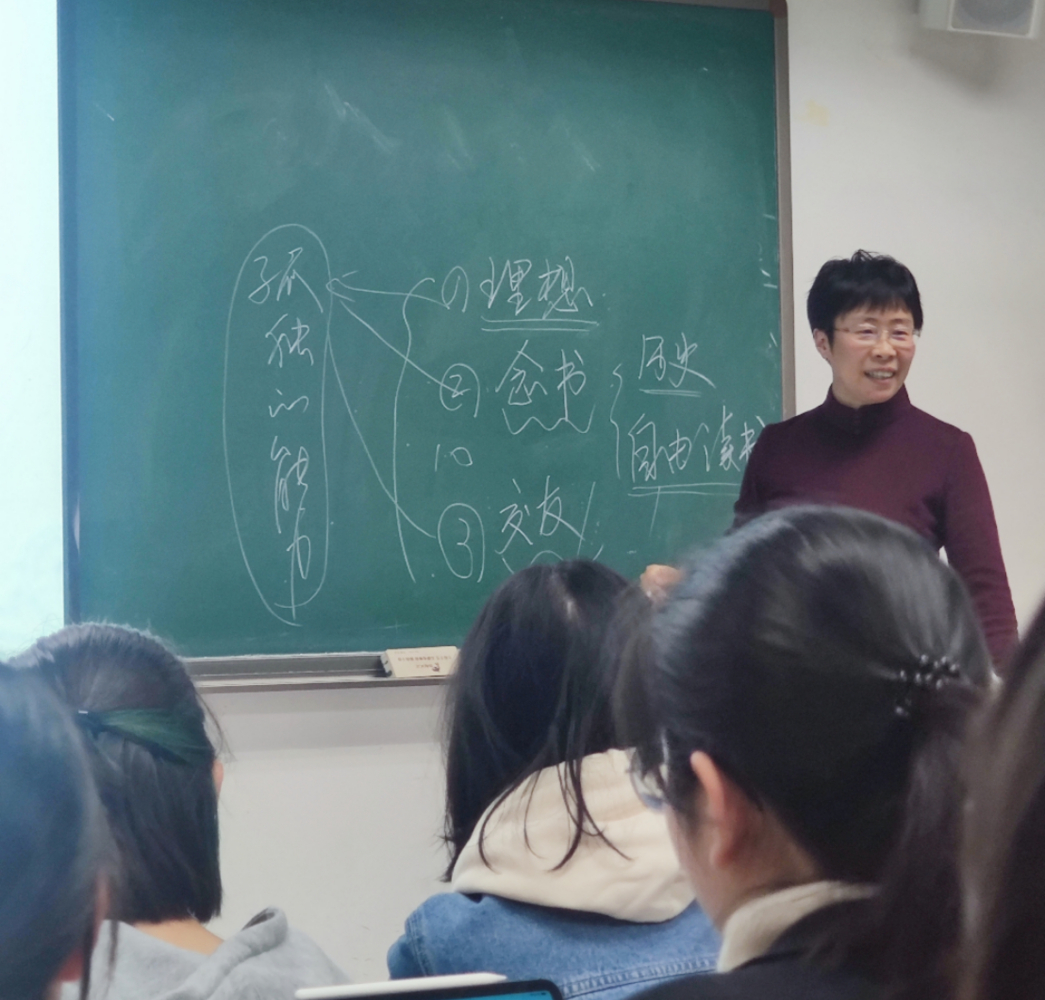 孤独的能力
① 理想
② 念书
历史
自由读书
③ 交友